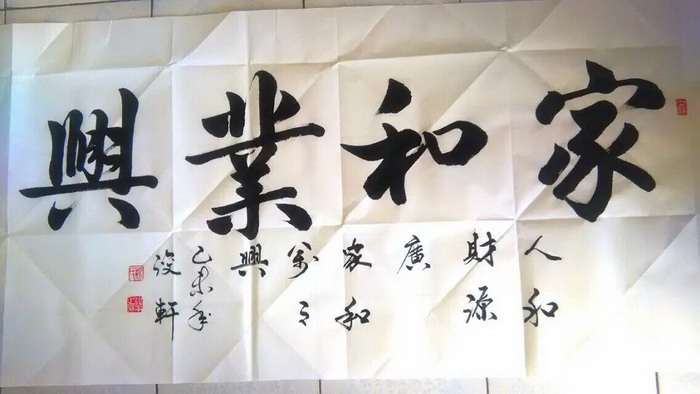 家和業興
人和
財源
廣
家和
萬
興
乙未年
浚軒